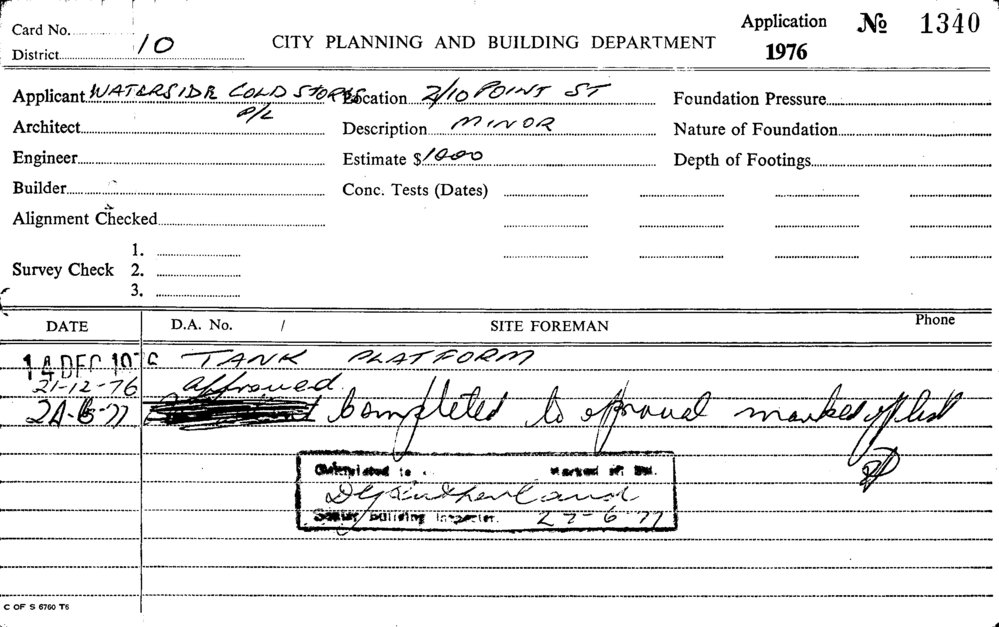 Card No.
District 10
CITY PLANNING AND BUILDING DEPARTMENT
Application № 1340
1976
Applicant WATERSIDE COLD STORES P/L
Location 2/10 POINT ST
Foundation Pressure
Architect
Description MINOR
Nature of Foundation
Engineer
Estimate $ 1000
Depth of Footings
Builder
Conc. Tests (Dates)
Alignment Checked
Survey Check 1.
2.
3.
DATE D.A. No. / SITE FOREMAN Phone
14 DEC 1976 TANK PLATFORM
21-12-76 approved.
24-6-77 Completed to approval marked off list
to marked off
Senior Building Inspector. 27-6 77
C OF S 6760 T6